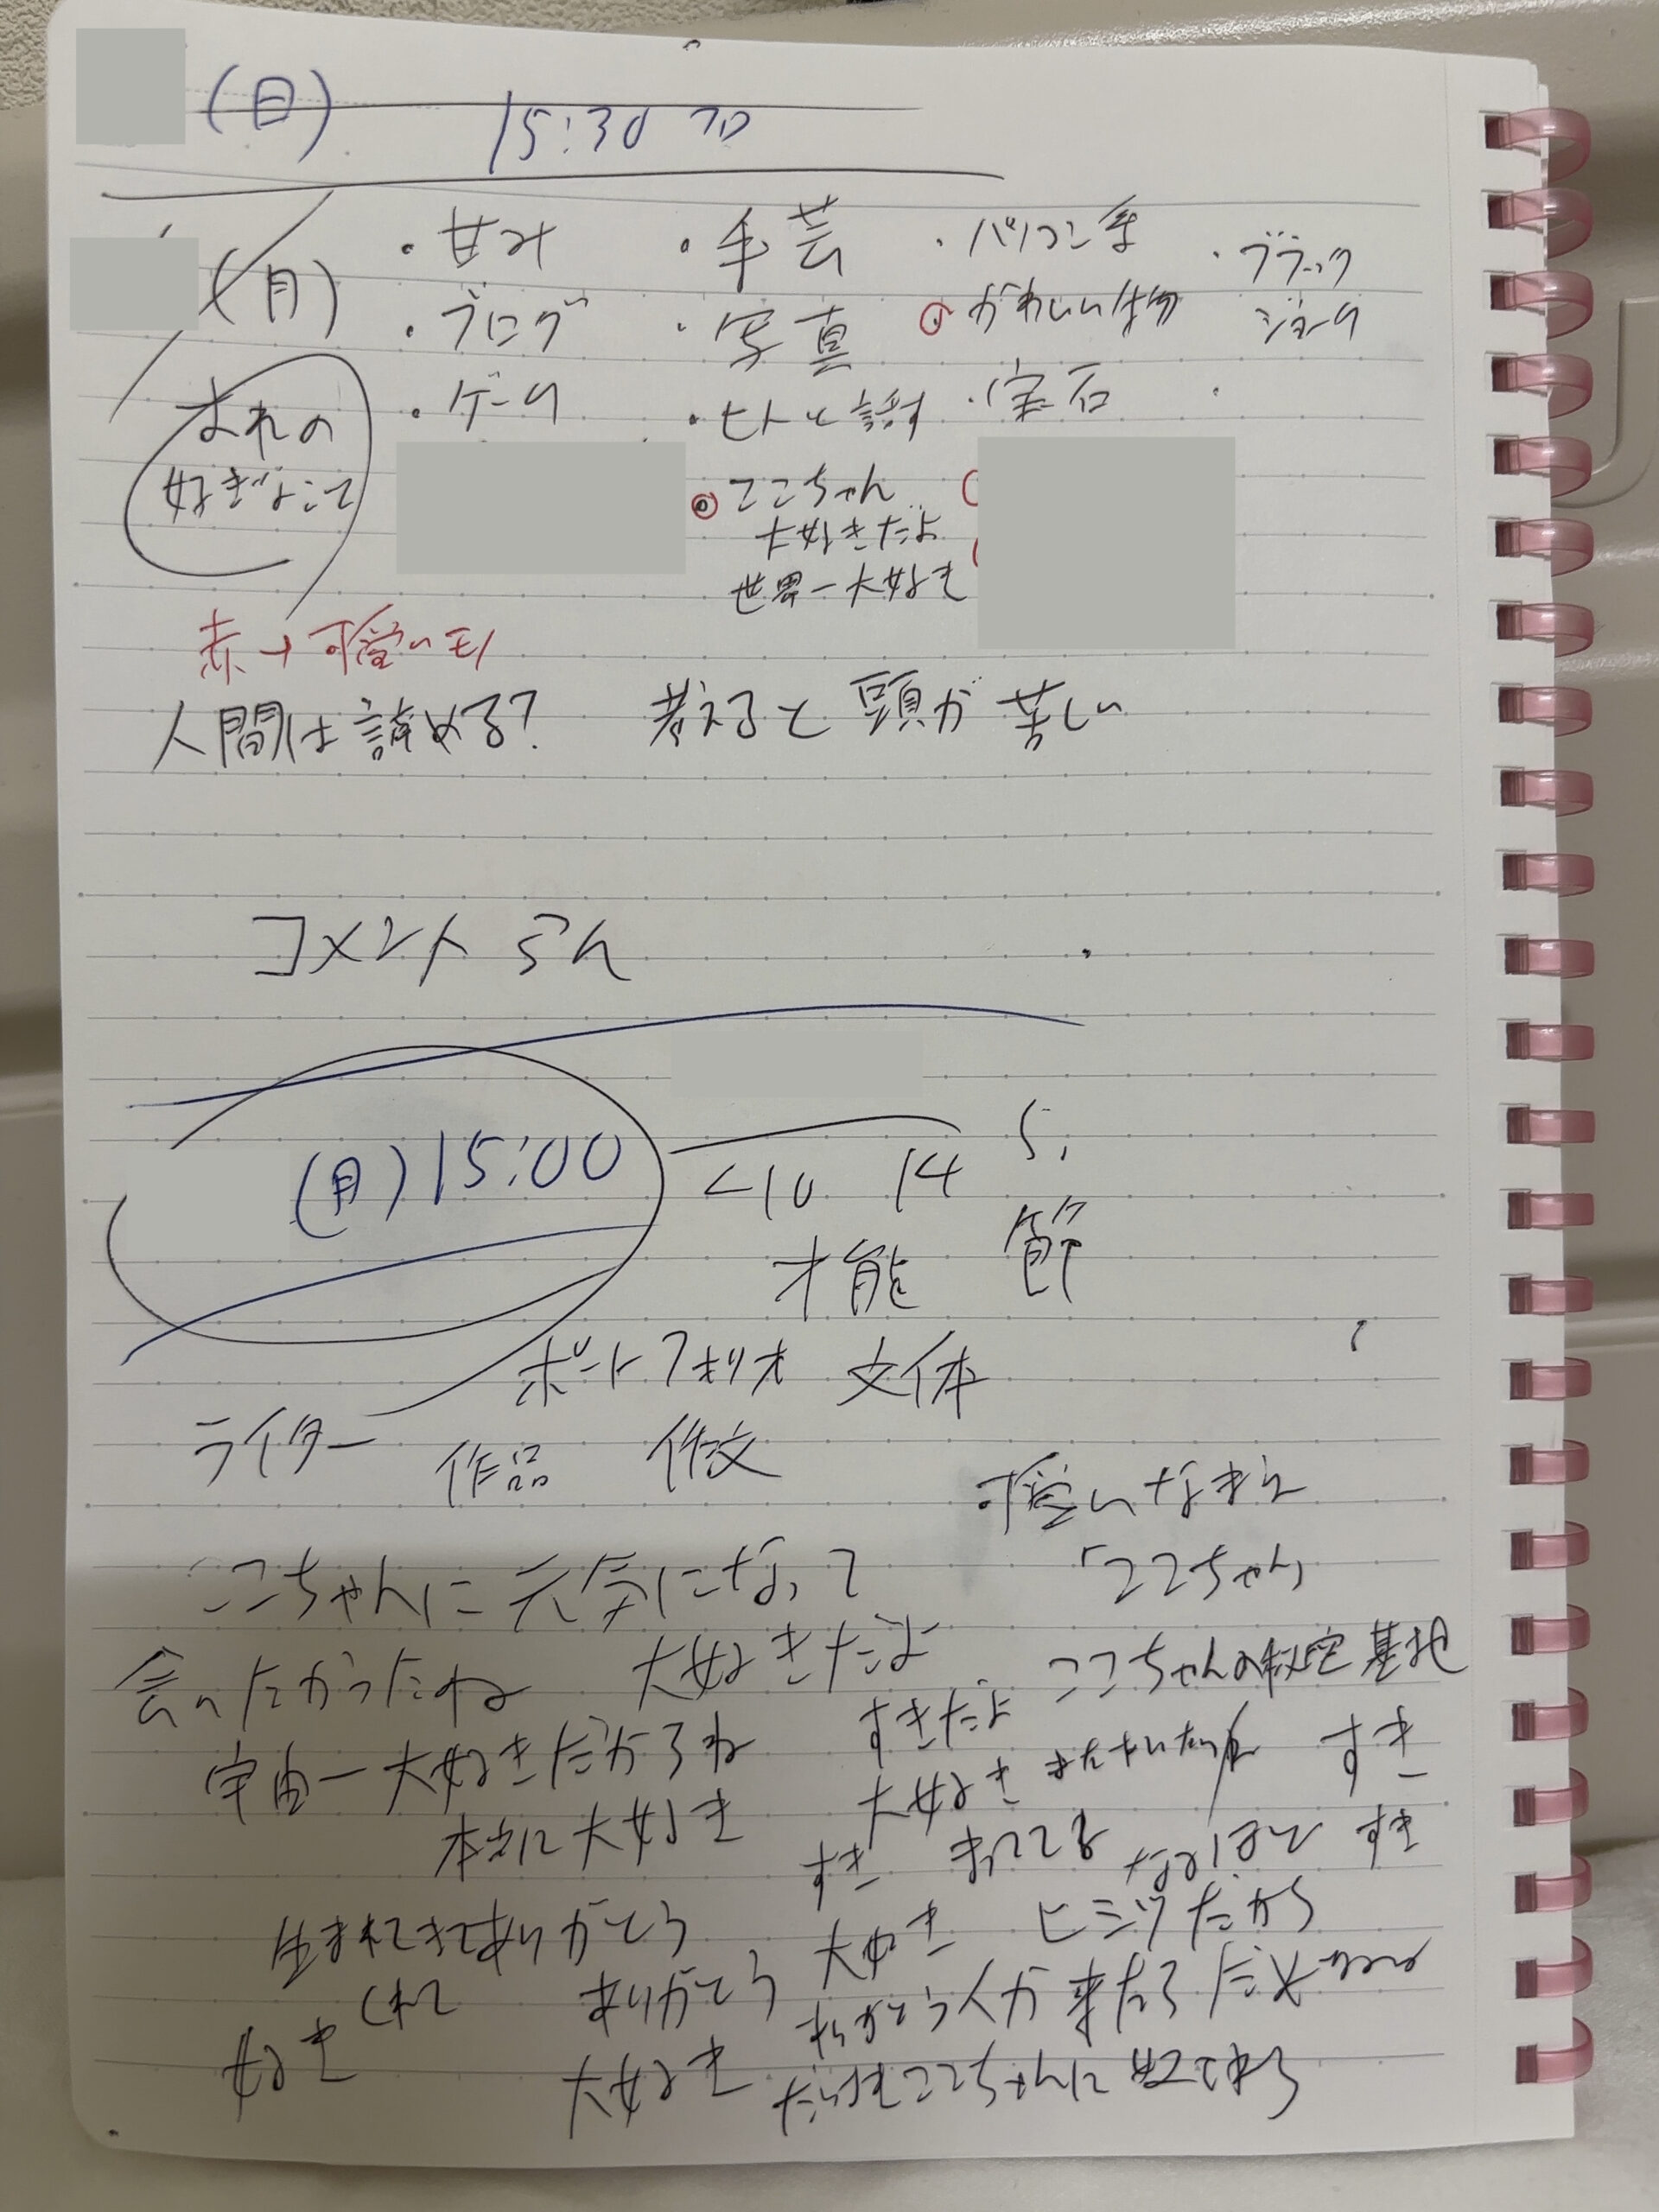 (日) 15:30
(月)
・甘み ・手芸 ・パソコン ・ブラック
ジョーク
・ブログ ・写真 かわいい物
・ゲーム ・ヒトと話す ・宝石
おれの
好きなこと
ここちゃん
大好きだよ
世界一大好き
赤→可愛いモノ
人間は諦める? 考えると頭が苦しい
コメントらん
(月) 15:00
<10 14 5,
才能 節
ポートフォリオ 文体
ライター 作品 作文
可愛いなまえ
「ココちゃん」
ここちゃんに元気になって
会いたかったね 大好きだよ
ここちゃんの秘密基地
宇宙一大好きだからね
すきだよ
大好き すき
本当に大好き
すき まってるよ なるほど すき
生まれてきてありがとう
大好き ヒミツだから
くれて ありがとう
ありがとう 人が来たら だめ
好き 大好き ここちゃんに